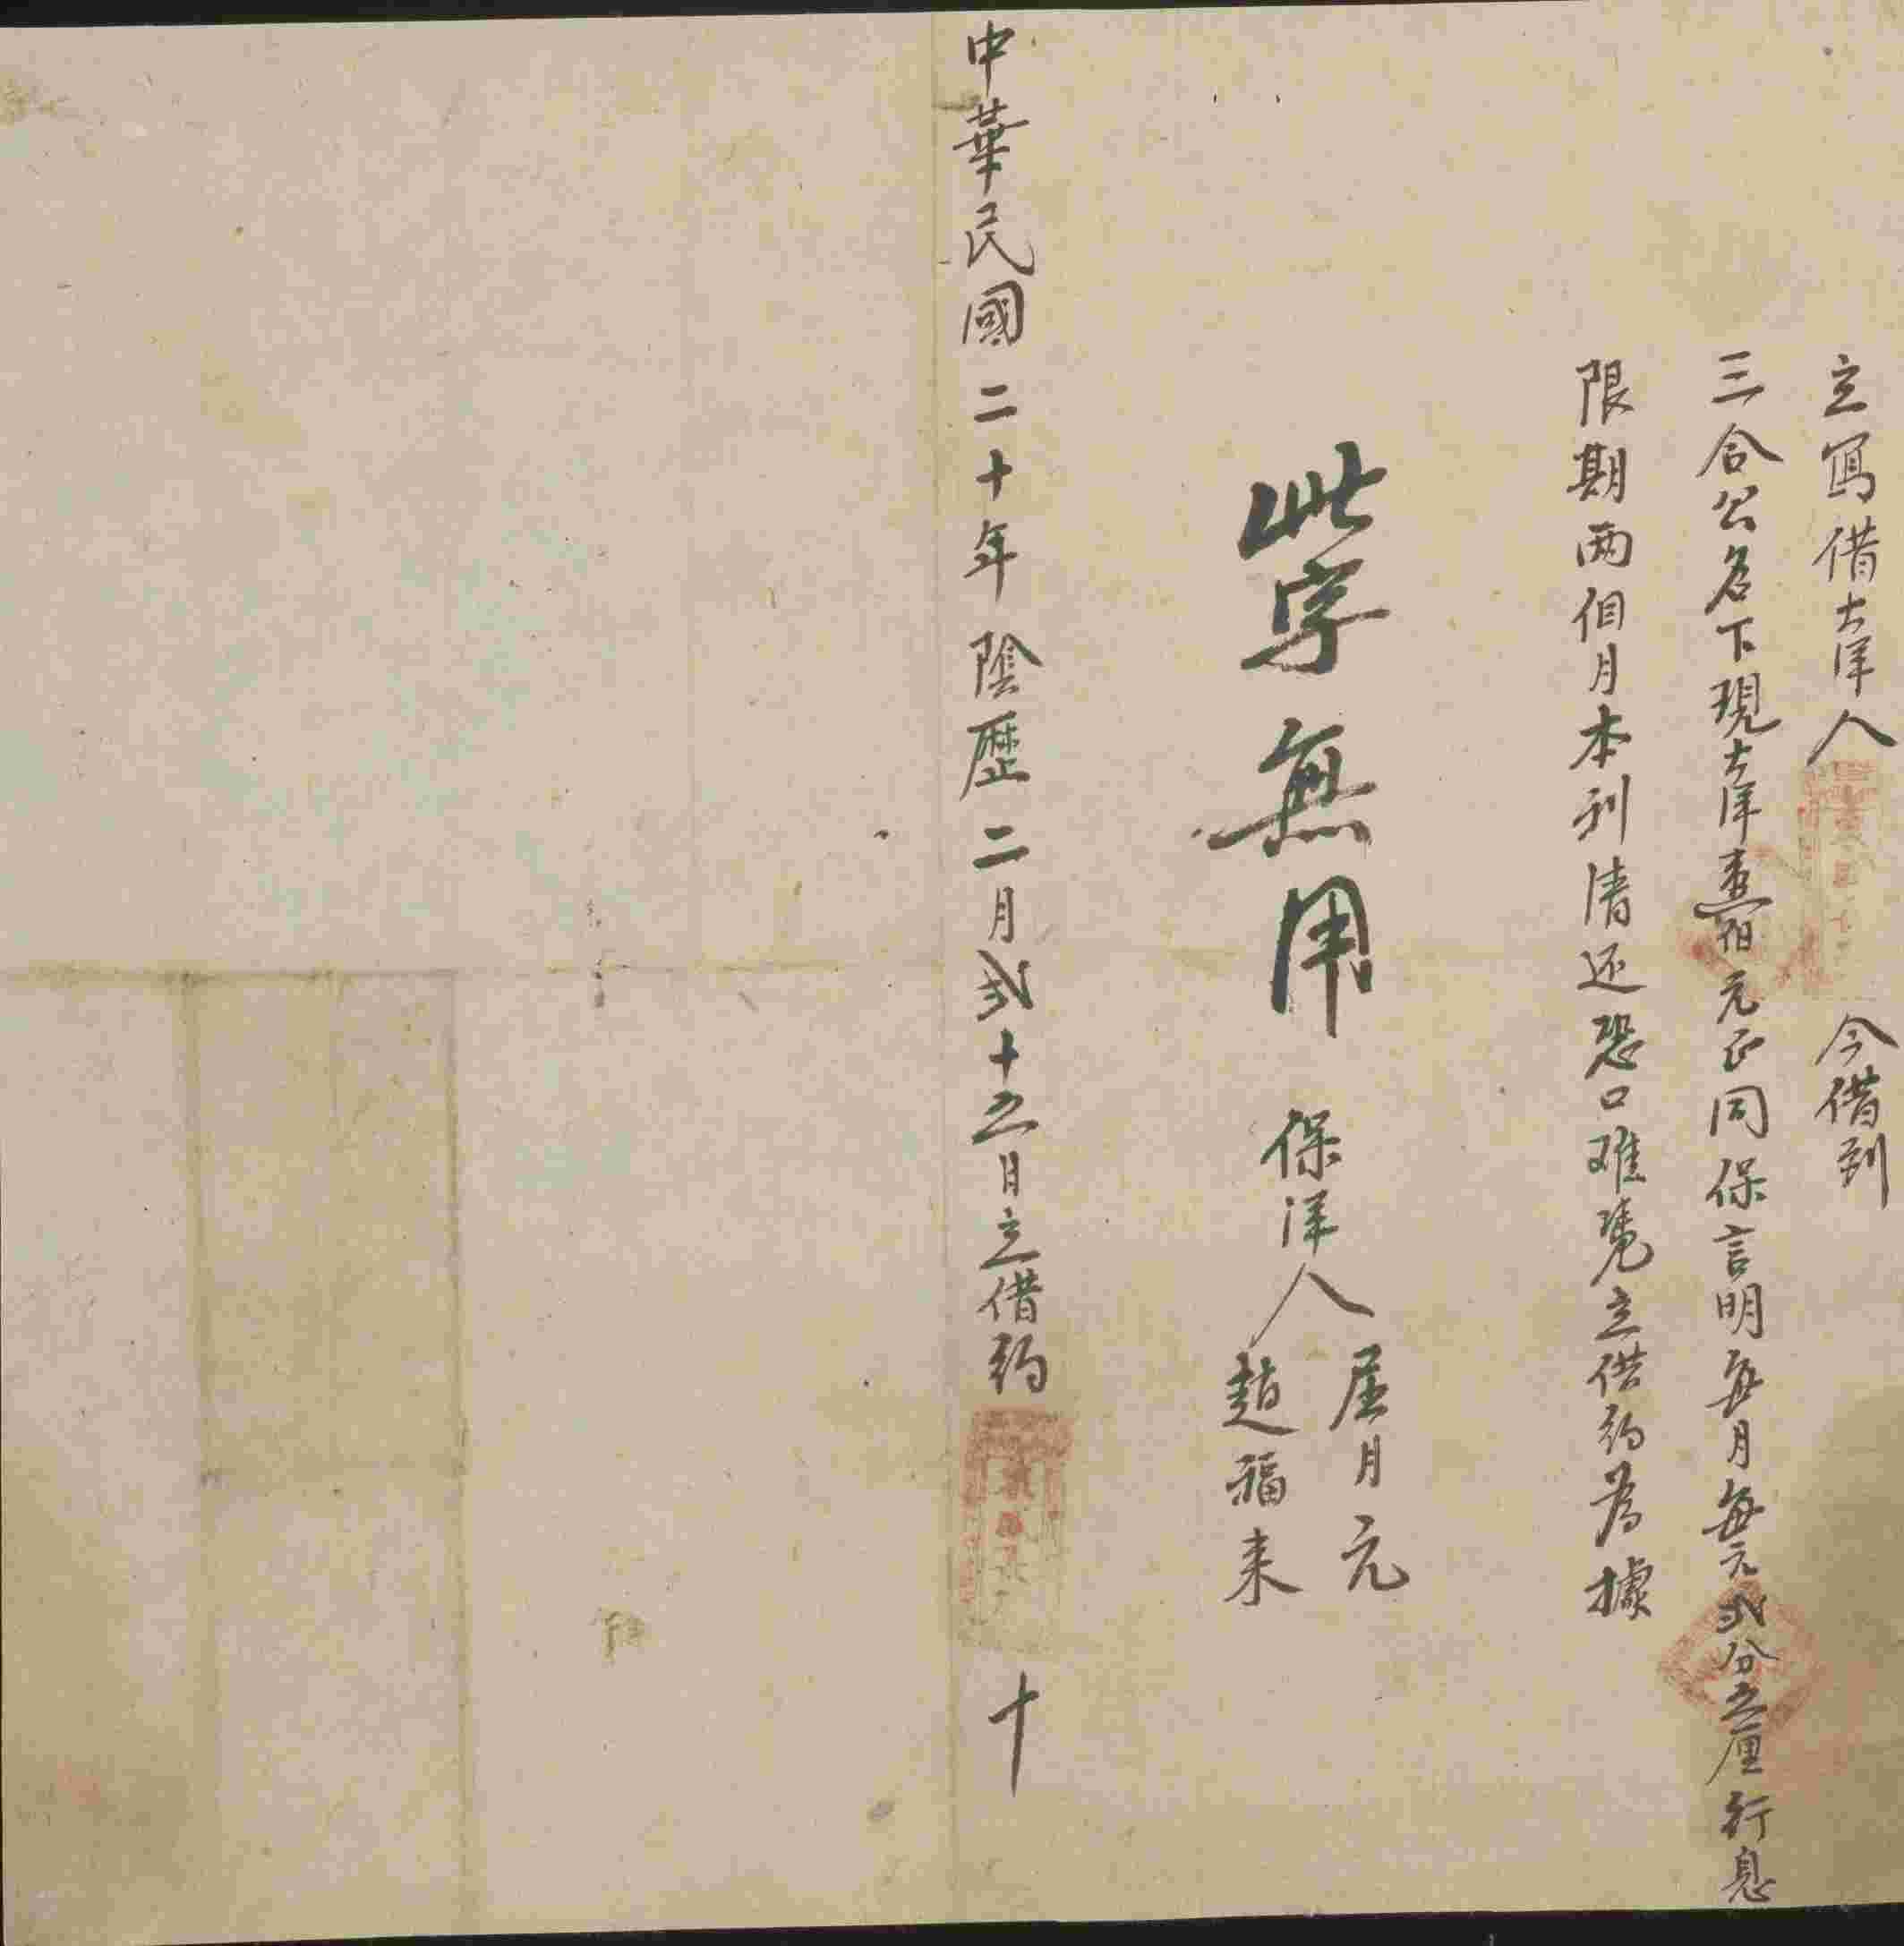 立寫借大洋人 今借到
三合公名下現大洋壹佰元正同保言明每月每元弍分五厘行息
限期两個月本利清还恐口难凭立借约為據
此字無用
保洋人 屈月元
趙福来
中華民國二十年陰歷二月弍十五日立借约 十